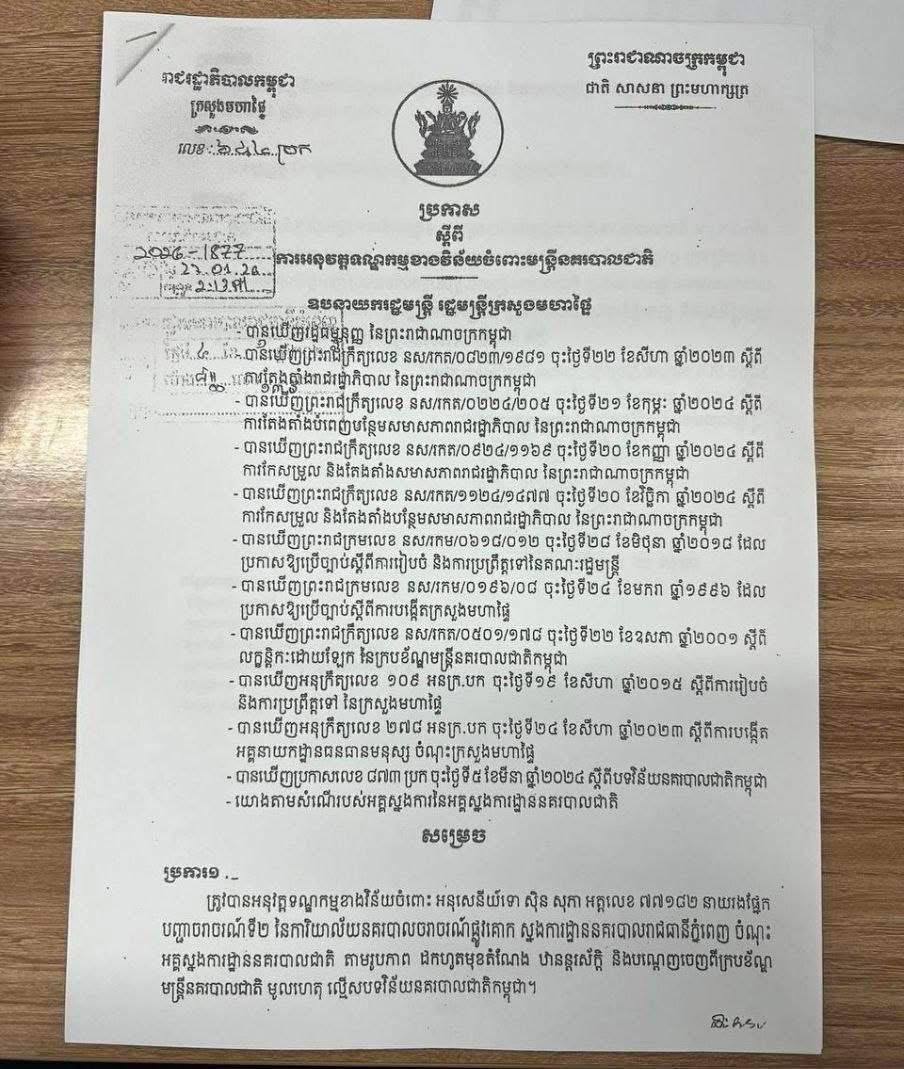 ព្រះរាជាណាចក្រកម្ពុជា
ជាតិ សាសនា ព្រះមហាក្សត្រ
រាជរដ្ឋាភិបាលកម្ពុជា
ក្រសួងមហាផ្ទៃ
លេខ: ប្រក
ប្រកាស
ស្តីពី
ការអនុវត្តទណ្ឌកម្មខាងវិន័យចំពោះមន្ត្រីនគរបាលជាតិ
2026-1877
23.01.26
2:13 PM
ឧបនាយករដ្ឋមន្ត្រី រដ្ឋមន្ត្រីក្រសួងមហាផ្ទៃ
- បានឃើញរដ្ឋធម្មនុញ្ញ នៃព្រះរាជាណាចក្រកម្ពុជា
- បានឃើញព្រះរាជក្រឹត្យលេខ នស/រកត/០៨២៣/១៩៨១ ចុះថ្ងៃទី២២ ខែសីហា ឆ្នាំ២០២៣ ស្តីពី
ការតែងតាំងរាជរដ្ឋាភិបាល នៃព្រះរាជាណាចក្រកម្ពុជា
- បានឃើញព្រះរាជក្រឹត្យលេខ នស/រកត/០២២៤/២០៥ ចុះថ្ងៃទី២១ ខែកុម្ភៈ ឆ្នាំ២០២៤ ស្តីពី
ការតែងតាំងបំពេញបន្ថែមសមាសភាពរាជរដ្ឋាភិបាល នៃព្រះរាជាណាចក្រកម្ពុជា
- បានឃើញព្រះរាជក្រឹត្យលេខ នស/រកត/០៩២៤/១១៦៩ ចុះថ្ងៃទី២០ ខែកញ្ញា ឆ្នាំ២០២៤ ស្តីពី
ការកែសម្រួល និងតែងតាំងសមាសភាពរាជរដ្ឋាភិបាល នៃព្រះរាជាណាចក្រកម្ពុជា
- បានឃើញព្រះរាជក្រឹត្យលេខ នស/រកត/១១២៤/១៨៧៧ ចុះថ្ងៃទី២០ ខែវិច្ឆិកា ឆ្នាំ២០២៤ ស្តីពី
ការកែសម្រួល និងតែងតាំងបន្ថែមសមាសភាពរាជរដ្ឋាភិបាល នៃព្រះរាជាណាចក្រកម្ពុជា
- បានឃើញព្រះរាជក្រមលេខ នស/រកម/០៦១៨/០១២ ចុះថ្ងៃទី២៨ ខែមិថុនា ឆ្នាំ២០១៨ ដែល
ប្រកាសឱ្យប្រើច្បាប់ស្តីពីការរៀបចំ និងការប្រព្រឹត្តទៅនៃគណៈរដ្ឋមន្ត្រី
- បានឃើញព្រះរាជក្រមលេខ នស/រកម/០១៩៦/០៨ ចុះថ្ងៃទី២៤ ខែមករា ឆ្នាំ១៩៩៦ ដែល
ប្រកាសឱ្យប្រើច្បាប់ស្តីពីការបង្កើតក្រសួងមហាផ្ទៃ
- បានឃើញព្រះរាជក្រឹត្យលេខ នស/រកត/០៥០១/១៧៨ ចុះថ្ងៃទី២២ ខែឧសភា ឆ្នាំ២០០១ ស្តីពី
លក្ខន្តិកៈដោយឡែក នៃក្របខ័ណ្ឌមន្ត្រីនគរបាលជាតិកម្ពុជា
- បានឃើញអនុក្រឹត្យលេខ ១០៩ អនក្រ.បក ចុះថ្ងៃទី១៩ ខែសីហា ឆ្នាំ២០១៥ ស្តីពីការរៀបចំ
និងការប្រព្រឹត្តទៅ នៃក្រសួងមហាផ្ទៃ
- បានឃើញអនុក្រឹត្យលេខ ២៧៨ អនក្រ.បក ចុះថ្ងៃទី២៤ ខែសីហា ឆ្នាំ២០២៣ ស្តីពីការបង្កើត
អគ្គនាយកដ្ឋានធនធានមនុស្ស ចំណុះក្រសួងមហាផ្ទៃ
- បានឃើញប្រកាសលេខ ៨៧៣ ប្រក ចុះថ្ងៃទី៥ ខែមីនា ឆ្នាំ២០២៤ ស្តីពីបទវិន័យនគរបាលជាតិកម្ពុជា
- យោងតាមសំណើរបស់អគ្គស្នងការនៃអគ្គស្នងការដ្ឋាននគរបាលជាតិ
សម្រេច
ប្រការ១ ._
ត្រូវបានអនុវត្តទណ្ឌកម្មខាងវិន័យចំពោះ អនុសេនីយ៍ទោ ស៊ិន សុភា អត្តលេខ ៧៧១៨២ នាយរងផ្នែក
បញ្ជាចរាចរណ៍ទី២ នៃការិយាល័យនគរបាលចរាចរណ៍ផ្លូវគោក ស្នងការដ្ឋាននគរបាលរាជធានីភ្នំពេញ ចំណុះ
អគ្គស្នងការដ្ឋាននគរបាលជាតិ តាមរូបភាព ដកហូតមុខតំណែង ឋានន្តរស័ក្តិ និងបណ្តេញចេញពីក្របខ័ណ្ឌ
មន្ត្រីនគរបាលជាតិ មូលហេតុ ល្មើសបទវិន័យនគរបាលជាតិកម្ពុជា។